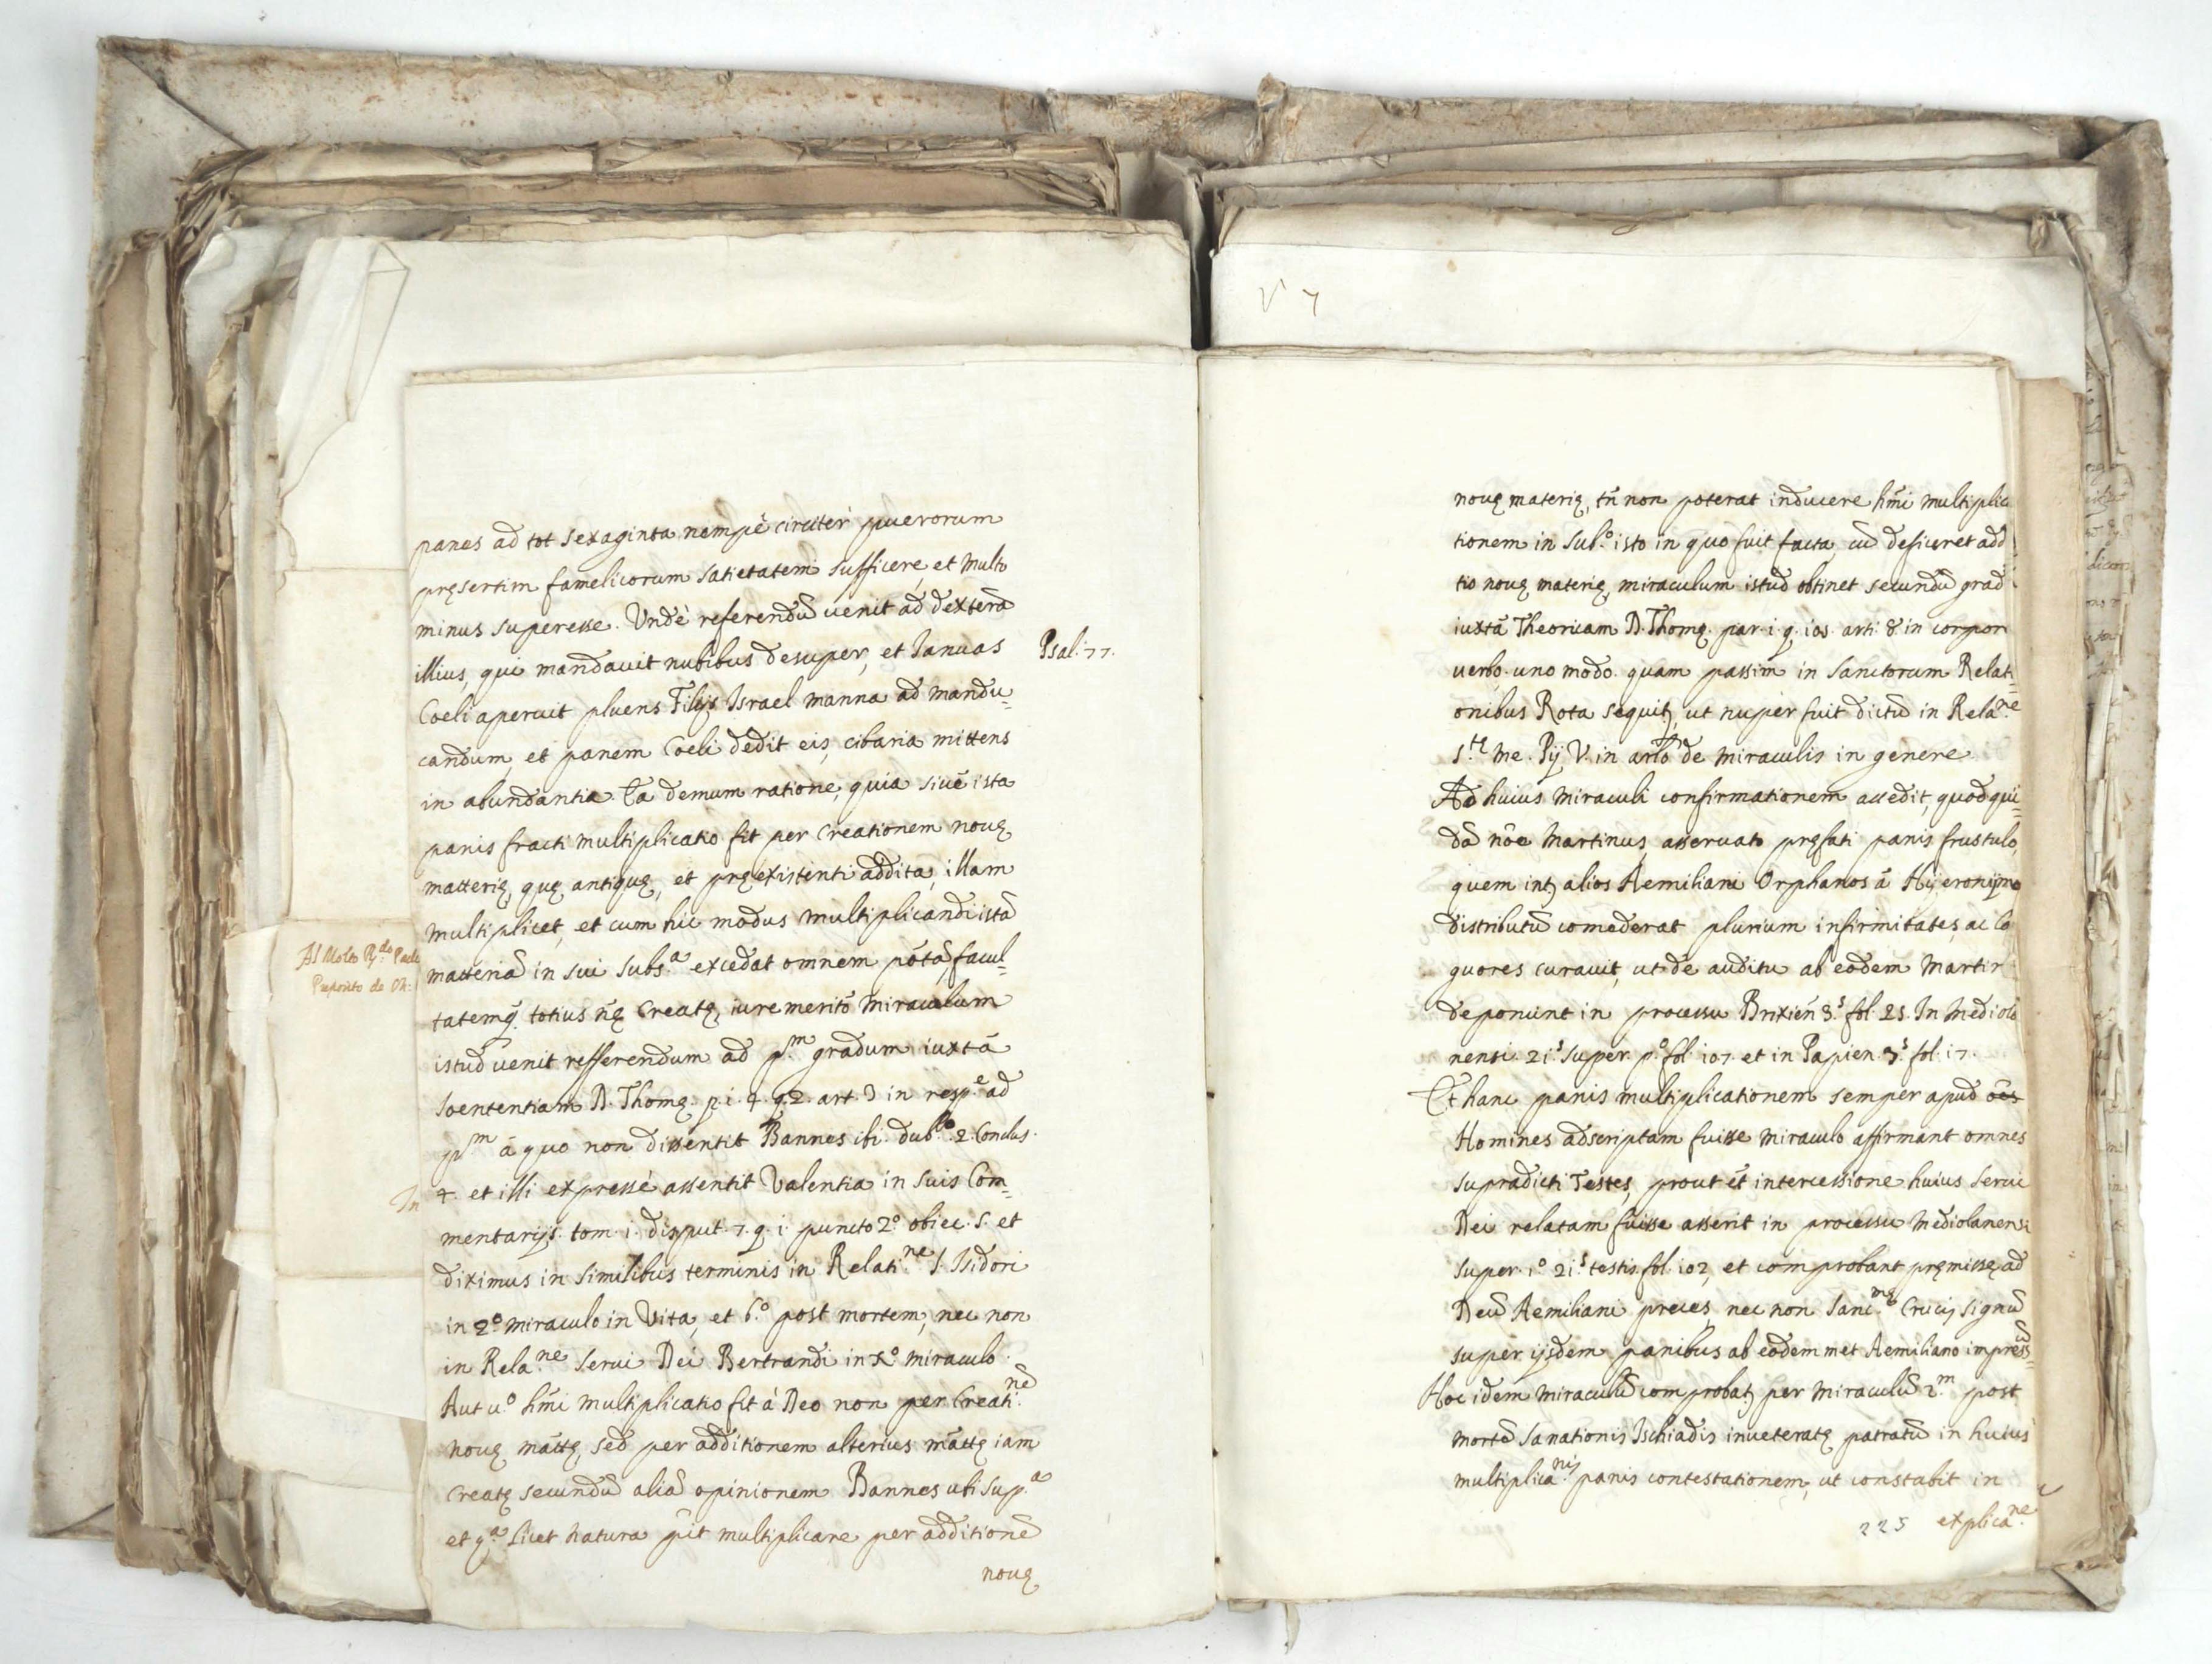 panes ad tot sexaginta nempè circiter puerorum
pręsertim famelicorum satietatem sufficere, et multo
minus superesse. Undè referendũ uenit ad dexterã
illius, qui mandauit nubibus desuper, et Ianuas
Psal. 77.
Coeli aperuit pluens Filijs Israel manna ad mandu=
candum, et panem Coeli dedit eis, cibaria mittens
in abundantia. Ea demum ratione, quia siuè ista
panis fracti multiplicatio fit per Creationem nouę
matterię, quę antiquę, et pręexistenti addita, illam
multiplicet, et cum hic modus multiplicandi istã
Al Molto R.do Padre
Preposito de
matteriã in sui subs.a excedat omnem põtã, facul=
tatemq. totius nę Creatę, iure meritò miraculum
istud uenit refferendum ad p.m gradum iuxtã
soententiam D. Thomę p. i. q. 92. art. 3 in resp.e ad
p.m à quo non dissentit Bannes ibi dub.o 2. Conclus.
In
4. et illi expressè assentit Valentia in suis Com=
mentarijs. tom. i. disput. 7. q. i. puncto 2.o obiec. 5. et
diximus in similibus terminis in Relati.ne S. Isidori
in 2.o miraculo in Vita, et 6.o post mortem, nec non
in Rela.ne serui Dei Bertrandi in X.o miraculo.
Aut u.o hm̃i multiplicatio fit à Deo non per Creati.nẽ
nouę mãttę, sed per additionem alterius mãttę iam
Creatę secundũ aliã opinionem Bannes ubi sup.a
et q.a licet natura p̃it multiplicare per additionẽ
nouę
V 7
nouę materię, tñ non poterat inducere hm̃i multiplic
tionem in sub.o isto in quo fuit facta, cũ deficeret addi
tio nouę materię, miraculum istud obtinet secundũ grad
iuxtã Theoricam D. Thomę par. i. q. 105. arti. 8 in corpor
uerbo. uno modo. quam passim in Sanctorum Relati=
onibus Rota sequit, ut nuper fuit dictũ in Rela.ne
S.te me. Pij V. in arlo de miraculis in genere
Ad huius miraculi confirmationem accedit, quod qui=
dã nõe Martinus, asseruato pręfati panis frustulo,
quem int alios Aemiliani Orphanos à Hijeronijmo
distributũ comederat plurium infirmitates, ac la
guores curauit, ut de auditu ab eodem Martin
deponunt in processu Brixieñ 8.s fol. 25. In Mediola
nensi. 21.s super p.o fol. 107. et in Papien. 3.s fol. 17.
Et hanc panis multiplicationem semper apud o͠es
Homines adscriptam fuisse miraculo affirmant omnes
supradicti Testes, prout ẽt intercessione huius Serui
Dei relatam fuisse asserit in processu Mediolanensi
super. i.o 21.s testis fol. 102, et comprobant pręmissę ad
Deũ Aemiliani preces, nec non Sanc.mę Crucis signũ
super ijsdem panibus ab eodem met Aemiliano impress=
Hoc idem miraculũ comprobat per miraculũ 2.m post
mortẽ sanationis Ischiadis inueteratę patratũ in huius
multiplica.nis panis contestationem, ut constabit in
225 explica.ne